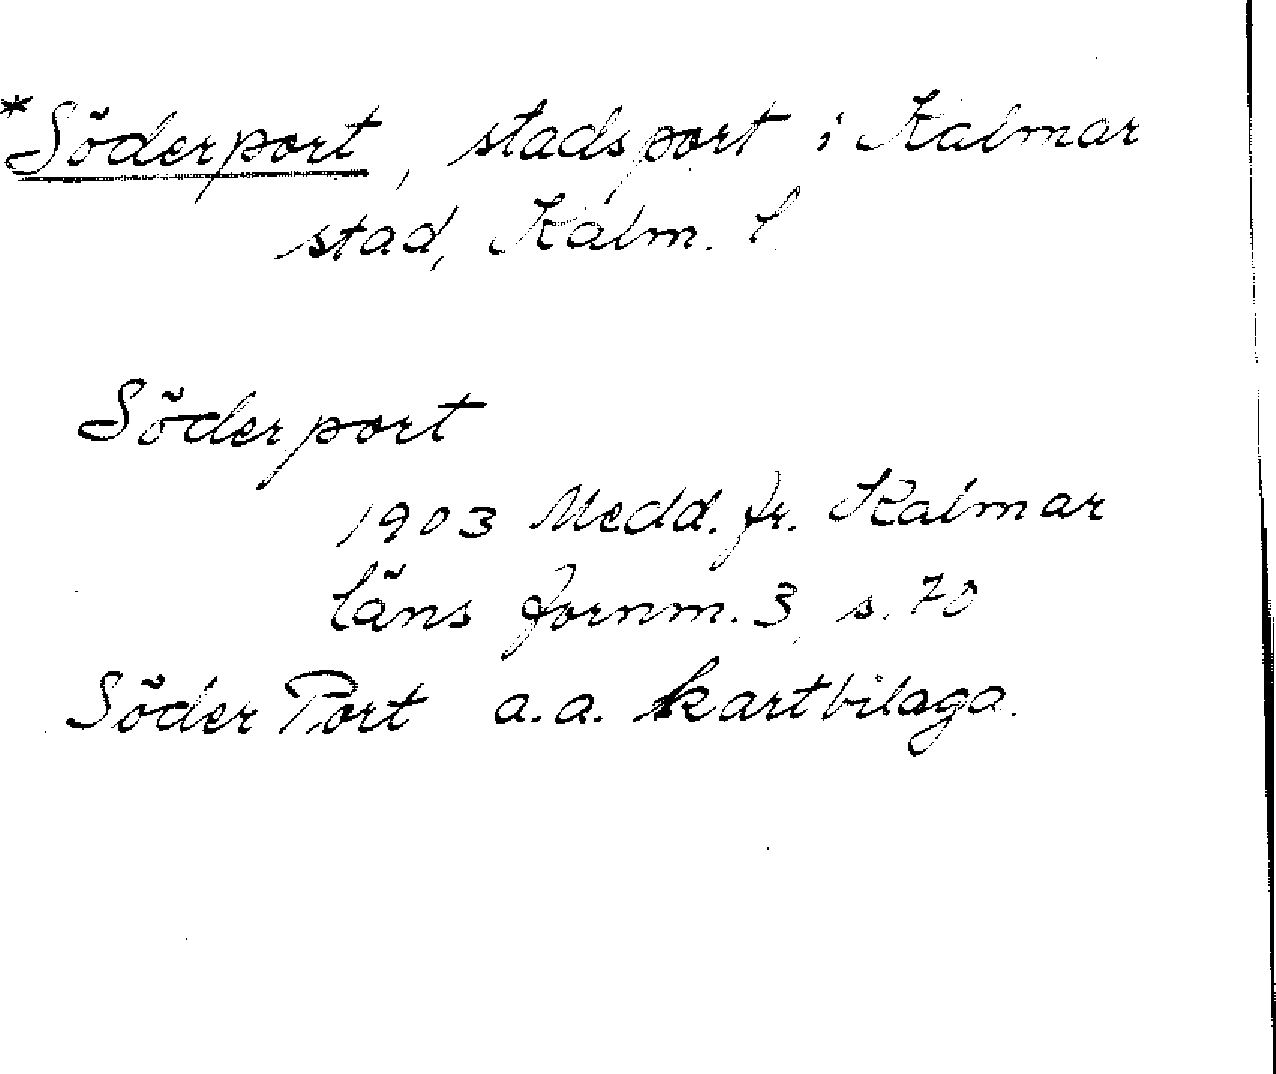 *Söderport, stadsport i Kalmar
stad, Kalm. l.
Söderport
1903 Medd. fr. Kalmar
läns fornm. 3, s. 70
Söder Port a.a. kartbilaga.